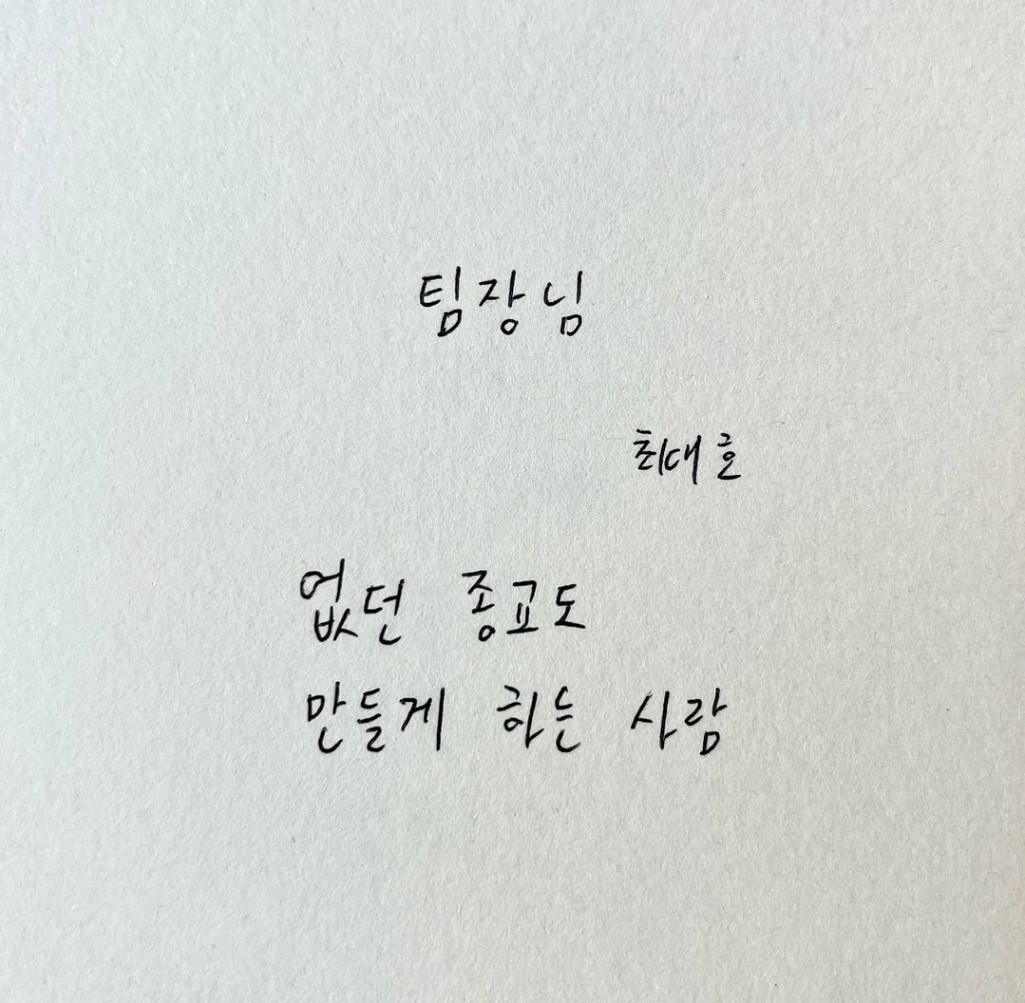 팀장님
최대호
없던 종교도
만들게 하는 사람